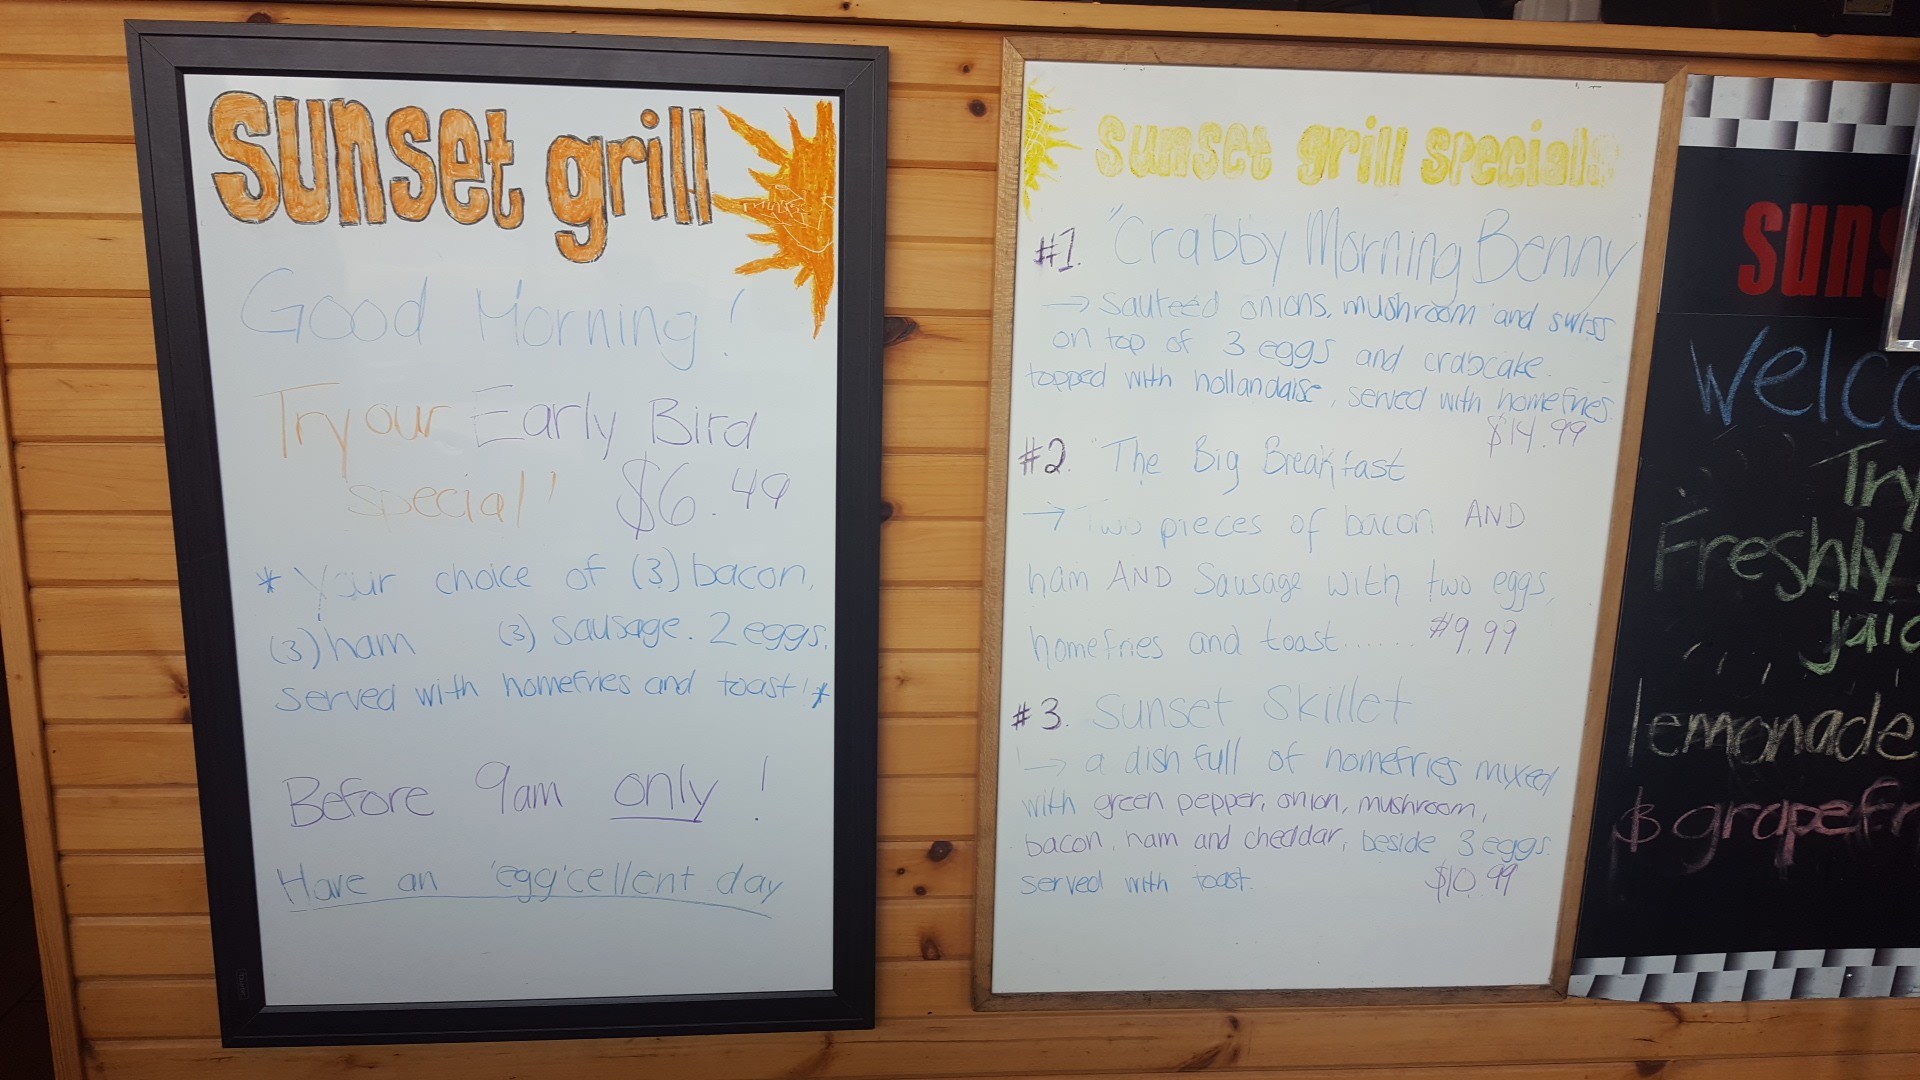 sunset grill
Good Morning!
Try our Early Bird
special! $6.49
* Your choice of (3) bacon,
(3) ham (3) sausage. 2 eggs,
served with homefries and toast! *
Before 9am only!
Have an 'egg'cellent day
sunset grill specials
#1. "Crabby Morning Benny
→ sauteed onions, mushroom and swiss
on top of 3 eggs and crabcake.
topped with hollandaise, served with homefries.
$14.99
#2. "The Big Breakfast
→ Two pieces of bacon AND
ham AND Sausage with two eggs,
homefries and toast....... $9.99
#3. Sunset Skillet
→ a dish full of homefries mixed
with green pepper, onion, mushroom,
bacon, ham and cheddar, beside 3 eggs.
served with toast. $10.99
suns
Welco
Try
Freshly
juic
lemonade
$ grapefr